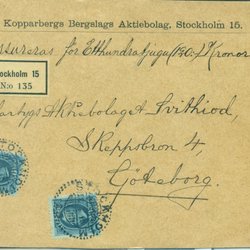 Kopparbergs Bergslags Aktiebolag, Stockholm 15.
för Etthundratjugo (120:-) Kronor
Stockholm 15
No 135
Aktiebolaget Svithiod,
Skeppsbron 4,
Göteborg.